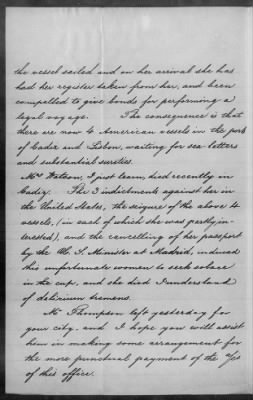 the vessel sailed and on her arrival she has
had her register taken from her, and been
compelled to give bonds for performing a
legal voyage. The consequence is that
there are now 4 American vessels in the ports
of Cadiz and Lisbon, waiting for sea-letters
and substantial sureties.
Mrs Watson, I just learn, died recently in
Cadiz. The 3 indictments against her in
the United States, the seizure of the above 4
vessels, (in each of which she was partly in-
terested), and the cancelling of her passport
by the U. S. Minister at Madrid, induced
this unfortunate woman to seek solace
in the cup, and she died I understand
of delirium tremens.
Mr Thompson left yesterday for
your city, and I hope you will assist
him in making some arrangement for
the more punctual payment of the
of this office.